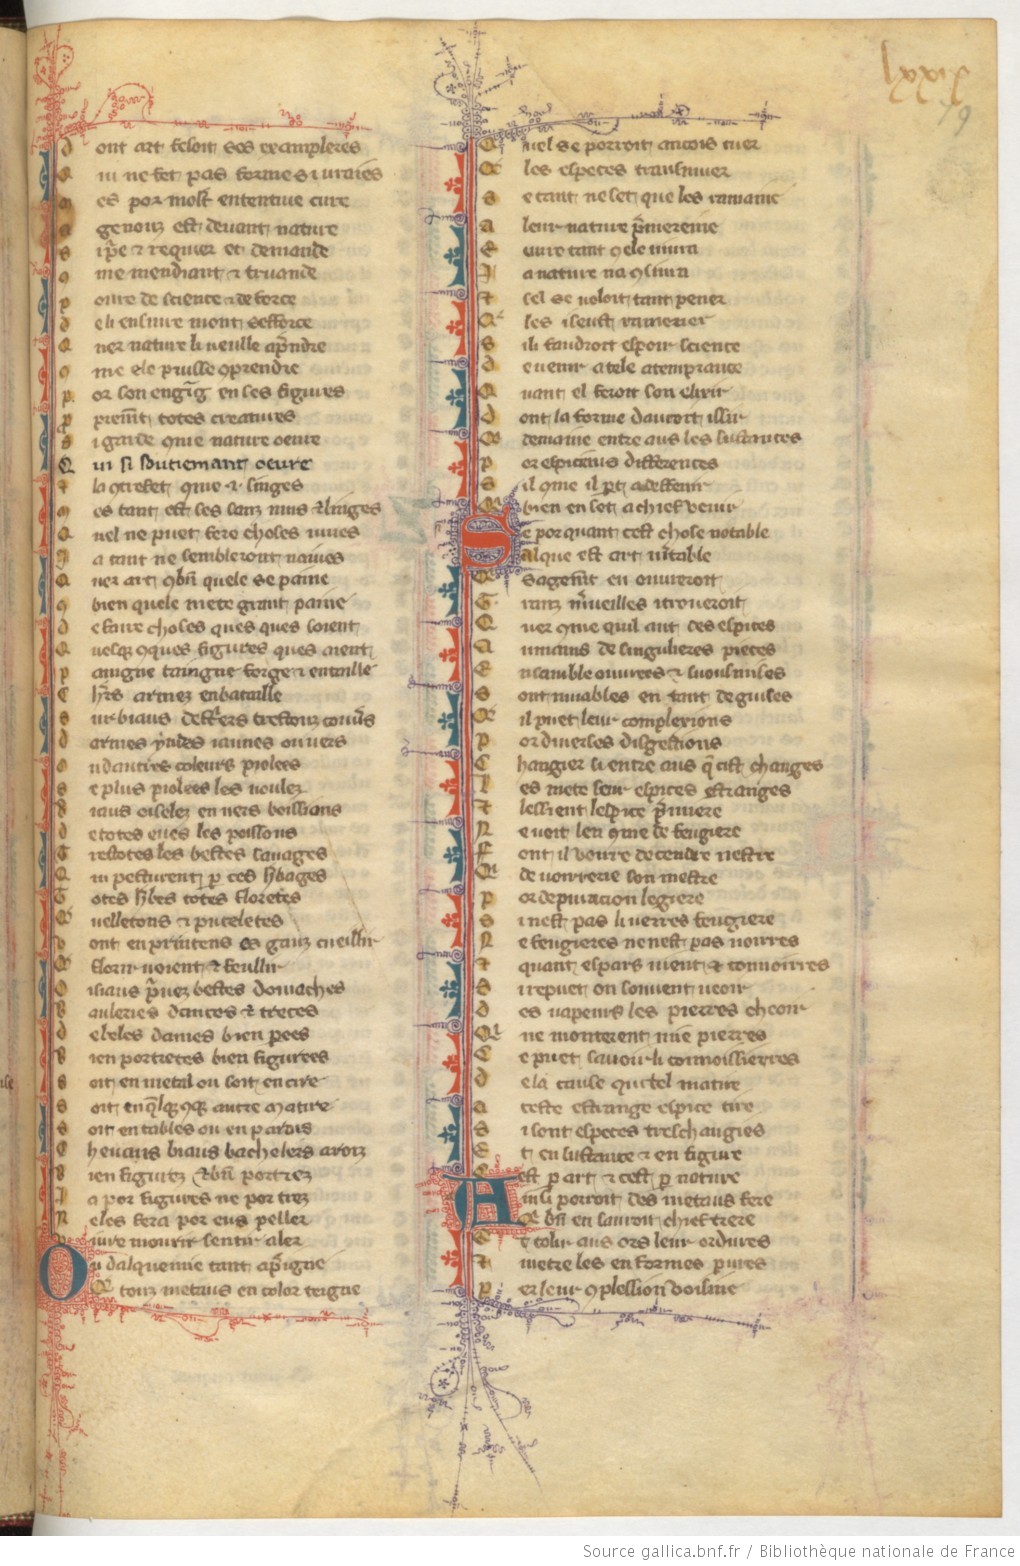 lxxix
79
d ont art feloit ses exampleres
Q ui ne fet pas formes si vraies
m es por molt ententive cure
a genouz est devant nature
s i p̃e & requier et demande
9 me mendiant & truande
p oure de science & de force
d
Q ner nature li veulle ap̃ndre
9 me ele puisse 9prendre
p or son engĩg en ses figures
p totes creatures
s i garde 9me nature oeure
Q ui si soutiement oeure
l la 9trefet 9me & singes
m es tant est ses sanz nus & linges
Q uel ne puet fere choses viues
i a tant ne sembleront naiues
Q uer art 9bñ quele se paine
9 bien quele mete grant paine
d e faire choses ques ques soient
Q uelq̃ 9ques figures ques aient
p aingne taingne forge & entaille
C armez en bataille
s ur biaus
d armes yndes iaunes ou vers
o u dautres coleurs piolees
s e plus piolees les voulez
B iaus oiselez en vers boissons
d e totes eues les poissons
T restotes les bestes sauages
Q ui pesturent p ces h̃bages
T otes h̃bes totes floretes
Q uelletons & puceletes
v ont en printens es gauz cueillir
Q florir voient & feullir
O isiaus p̃uez bestes domaches
B auleries dances & treces
d e beles dames bien pees
B ien portretes bien figurees
s oit en metal ou soit en cire
s oit en autre matire
s oit en tables ou en parois
C h eualiers biaus bachelers
B ien figurez & bñ portrez
I a por figures ne por trez
N e les fera por eus
v iure mourir sentir aler
O u dalquemie tant ap̃igne
Q touz metaus en color teigne
Q uel se porroit ancois tuer
Q les especes transmuer
s e tant ne fet que les ramaine
a leur nature p̃mereine
E uure tant 9 ele viura
I a nature na 9siura
E sel se voloit tant pener
Q les i seust ramener
S ili faudroit espoir science
d e venir a tele atemprance
Q uant el feroit son elixir
d ont la forme deuroit issir
Q deuise entre aus les sustances
p or especiaus differences
s il 9me il p̃t a deffenir
Q bien en set a chief venir
S e por quant cest chose notable
alque est art v̾itable
Q sagem̃t en ouurerott
G ranz m̃ueilles i troueroit
Q uer 9me quil aut des espices
A umains de singulieres pieces
E nsamble ouurees
s ont muables en tant de guises
Q il puet leur complexions
p or diuerses disgestions
C hangier si entre aus q̃ cist changes
l es mete souz espices estranges
t lessient lespice p̃miere
N e voit len 9me de feugiere
F ont il voirre de cendre nestre
Q de voirrerie son mestre
p or depuracion legiere
s i nest pas li verres feugiere
N e feugieres ne nest pas voirres
t quant espars vient & tonnoirres
s i repuet on souuent veoir
d es vapeurs les pierres cheoir
Q ne monterent mie pierres
C e puet sauoir li connoissierres
d e la cause qui tel matire
a ceste estrange espice tire
S i sont especes tres changies
E t en sustance & en figure
C est p art & cest p nature
A insi porroit des metaus fere
Q bñ en sauroit chief trere
E tolir aus ors leur ordures
t metre les en formes pures
p er leur 9plession voisine
Source gallica.bnf.fr / Bibliothèque nationale de France